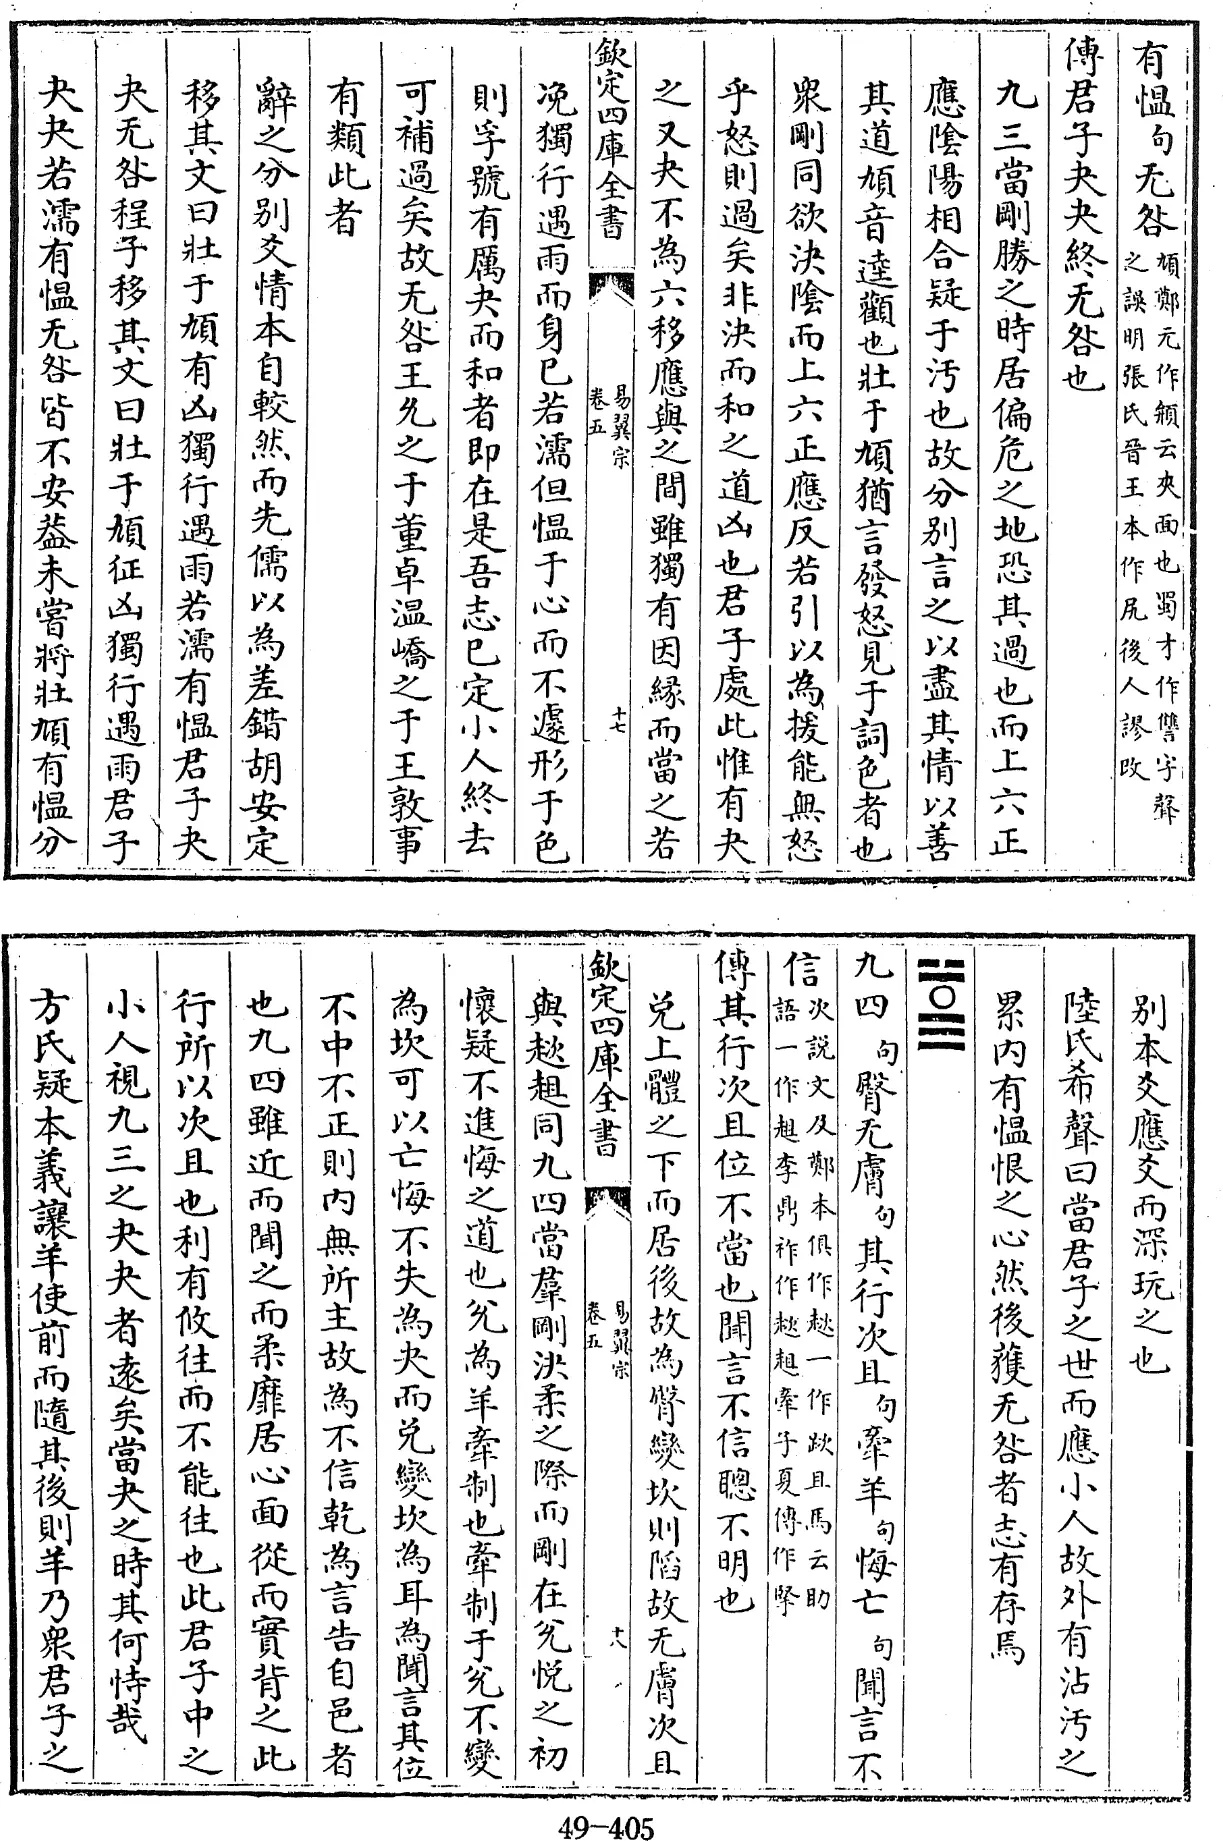 有愠句无咎頄鄭元作頯云夾面也蜀才作讐字聲
之誤明張氏晉王本作尻後人謬改
傳君子夬夬終无咎也
九三當剛勝之時居偏危之地恐其過也而上六正
應陰陽相合疑于汚也故分别言之以盡其情以善
其道頄音逵觀也壯于頄猶言發怒見于詞色者也
衆剛同欲決陰而上六正應反若引以為援能無怒
乎怒則過矣非決而和之道凶也君子處此惟有夬
之又夬不為六移應與之間雖獨有因緣而當之若
欽定四庫全書
易翼宗
卷五
十七
凂獨行遇雨而身已若濡但愠于心而不遽形于色
則孚號有厲夬而和者即在是吾志已定小人終去
可補過矣故无咎王允之于董卓温嶠之于王敦事
有類此者
辭之分别爻情本自較然而先儒以為差錯胡安定
移其文曰壯于頄有凶獨行遇雨若濡有愠君子夬
夬无咎程子移其文曰壯于頄征凶獨行遇雨君子
夬夬若濡有愠无咎皆不安葢未嘗將壯頄有愠分
别本爻應爻而深玩之也
陸氏希聲曰當君子之世而應小人故外有沾汚之
累内有愠恨之心然後獲无咎者志有存焉
九四句臀无膚句其行次且句牽羊句悔亡句聞言不
信次説文及鄭本俱作趑一作跂且馬云助
語一作趄李鼎祚作趑趄牽子夏傳作掔
傳其行次且位不當也聞言不信聰不明也
兌上體之下而居後故為臀變坎則陷故无膚次且
欽定四庫全書
易翼宗
卷五
十八
與趑趄同九四當羣剛決柔之際而剛在兊悦之初
懷疑不進悔之道也兊為羊牽制也牽制于兊不變
為坎可以亡悔不失為夬而兌變坎為耳為聞言其位
不中不正則内無所主故為不信乾為言告自邑者
也九四雖近而聞之而柔靡居心面從而實背之此
行所以次且也利有攸往而不能往也此君子中之
小人視九三之夬夬者遠矣當夬之時其何恃哉
方氏疑本義讓羊使前而隨其後則羊乃衆君子之
49-405